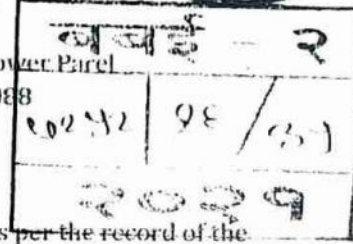 बबई - २
ower Parel
988
१०२५२ | १६ / ८५
२०२१
s per the record of the